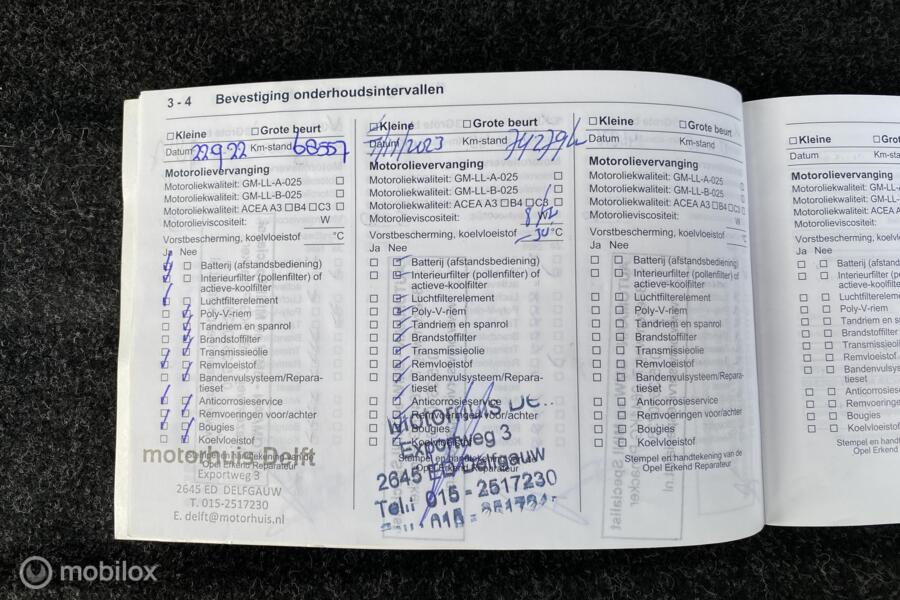 3 - 4 Bevestiging onderhoudsintervallen
Kleine Grote beurt
Datum 22 9 22 Km-stand 68557
Motorolievervanging
Motoroliekwaliteit: GM-LL-A-025
Motoroliekwaliteit: GM-LL-B-025
Motoroliekwaliteit: ACEA A3 B4 C3
Motorolieviscositeit: W
Vorstbescherming, koelvloeistof °C
Ja Nee
Batterij (afstandsbediening)
Interieurfilter (pollenfilter) of
actieve-koolfilter
Luchtfilterelement
Poly-V-riem
Tandriem en spanrol
Brandstoffilter
Transmissieolie
Remvloeistof
Bandenvulsysteem/Repara-
tieset
Anticorrosieservice
Remvoeringen voor/achter
Bougies
Koelvloeistof
motorhuis Delft
Opel Erkend Reparateur
Exportweg 3
2645 ED DELFGAUW
T. 015-2517230
E. delft@motorhuis.nl
Kleine Grote beurt
Datum /11/2023 Km-stand 74279
Motorolievervanging
Motoroliekwaliteit: GM-LL-A-025
Motoroliekwaliteit: GM-LL-B-025
Motoroliekwaliteit: ACEA A3 B4 C3
Motorolieviscositeit:
Vorstbescherming, koelvloeistof -30 °C
Ja Nee
Batterij (afstandsbediening)
Interieurfilter (pollenfilter) of
actieve-koolfilter
Luchtfilterelement
Poly-V-riem
Tandriem en spanrol
Brandstoffilter
Transmissieolie
Remvloeistof
Bandenvulsysteem/Repara-
tieset
Anticorrosieservice
Remvoeringen voor/achter
Bougies
Koelvloeistof
Motorhuis DE
Exportweg 3
Stempel en handtekening van de
Opel Erkend Reparateur
2645 ED Delfgauw
Tel: 015 - 2517230
Kleine Grote beurt
Datum Km-stand
Motorolievervanging
Motoroliekwaliteit: GM-LL-A-025
Motoroliekwaliteit: GM-LL-B-025
Motoroliekwaliteit: ACEA A3 B4 C3
Motorolieviscositeit: W
Vorstbescherming, koelvloeistof °C
Ja Nee
Batterij (afstandsbediening)
Interieurfilter (pollenfilter) of
actieve-koolfilter
Luchtfilterelement
Poly-V-riem
Tandriem en spanrol
Brandstoffilter
Transmissieolie
Remvloeistof
Bandenvulsysteem/Repara-
tieset
Anticorrosieservice
Remvoeringen voor/achter
Bougies
Koelvloeistof
Stempel en handtekening van de
Opel Erkend Reparateur
Kleine Grot
Datum Km-stan
Motorolievervanging
Motoroliekwaliteit: GM-LL-
Motoroliekwaliteit: GM-LL-
Motoroliekwaliteit: ACEA A
Motorolieviscositeit:
Vorstbescherming, koelvloei
Ja Nee
Batterij (afstands
Interieurfilter (po
actieve-koolfilter
Luchtfilterelemen
Poly-V-riem
Tandriem en spa
Brandstoffilter
Transmissieolie
Remvloeistof
Bandenvulsys
tieset
Anticorrosiese
Remvoeringen
Bougies
Koelvloeistof
Stempel en handt
Opel Erk
mobilox